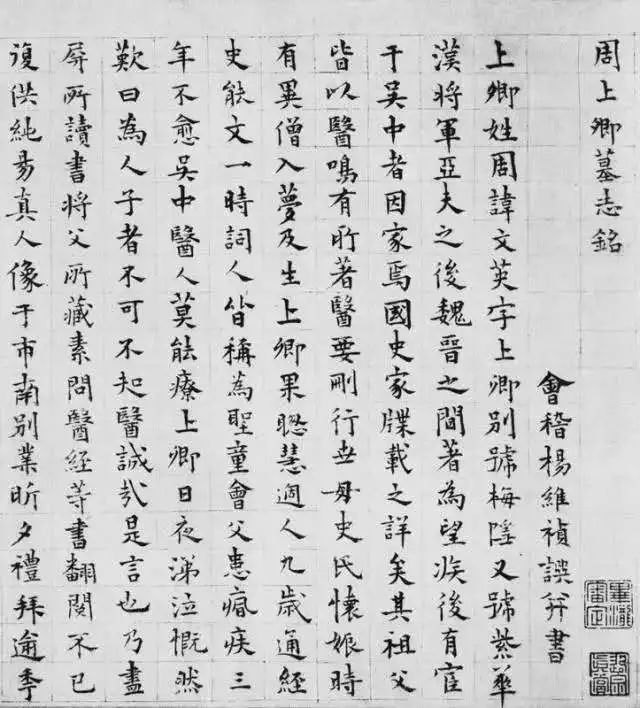 周上卿墓志銘
會稽楊維禎譔并書
上卿姓周諱文英字上卿別號梅隱又號紫華
漢將軍亞夫之後魏晉之間著為望族後有宦
于吳中者因家焉國史家牒載之詳矣其祖父
皆以醫鳴有所著醫要刪行世母史氏懷娠時
有異僧入夢及生上卿果聰慧過人九歲通經
史能文一時詞人皆稱為聖童會父患瘋疾三
年不愈吳中醫人莫能療上卿日夜涕泣慨然
歎曰為人子者不可不知醫誠哉是言也乃盡
屏所讀書將父所藏素問醫經等書翻閱不已
復供純昜真人像于市南別業昕夕禮拜逾季